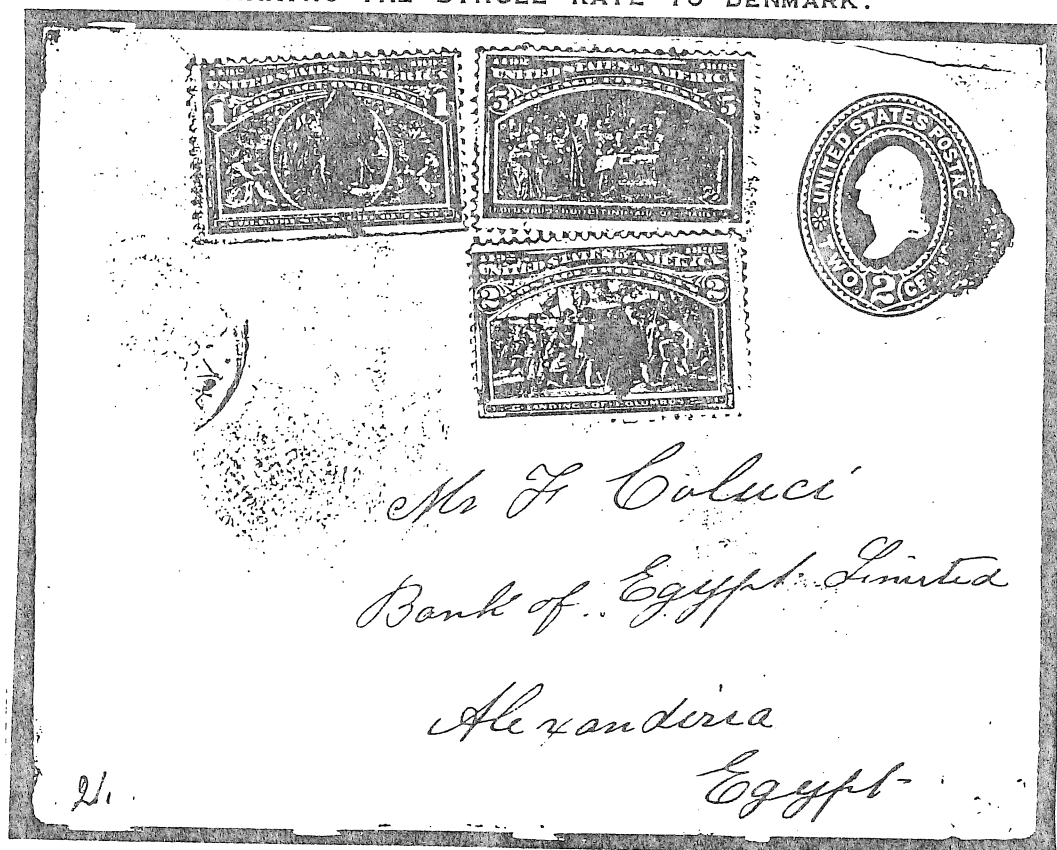 THE SINGLE RATE TO DENMARK.
UNITED STATES OF AMERICA
1 1
UNITED STATES OF AMERICA
5 5
UNITED STATES OF AMERICA
2 2
LANDING OF COLUMBUS
UNITED STATES POSTAGE
TWO 2 CENTS
Mr F Coluci
Bank of Egypt Limited
Alexandiria
Egypt
2/.